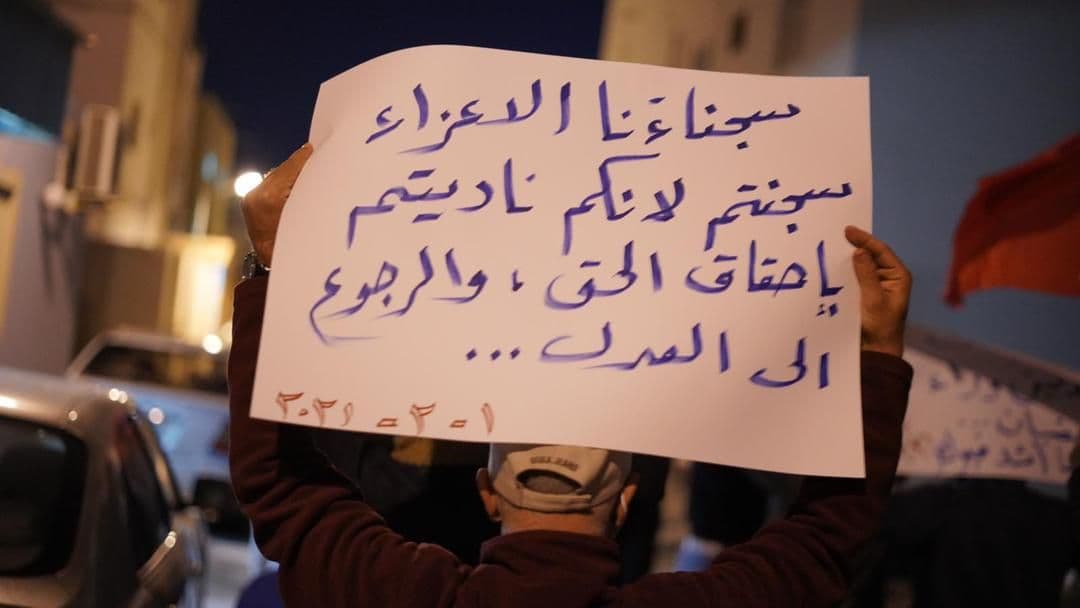 سجناءنا الاعزاء
سجنتم لانكم ناديتم
بإحقاق الحق ، والرجوع
الى العدل ...
١ - ٢ - ٢٠٢١